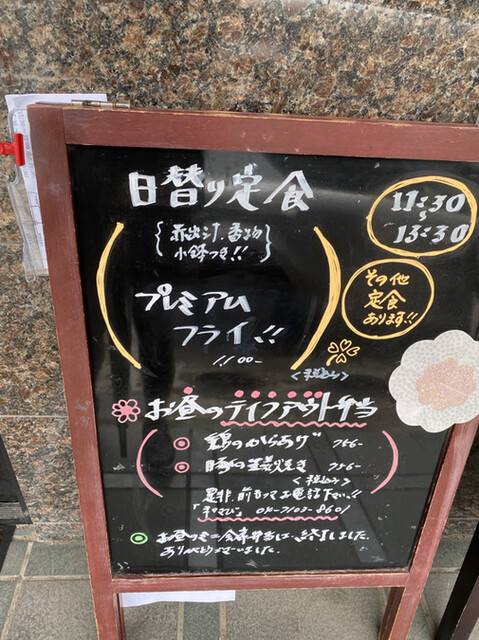 日替り定食
11:30
〜
13:30
赤出汁、香物
小鉢つき!!
その他
定食
あります!!
プレミアム
フライ!!
1100-
<税込み>
お昼のテイクアウト弁当
鶏のからあげ 756-
豚の生姜焼き 756-
<税込み>
是非、前もってお電話下さい!!
04-7103-8601
お昼のミニ会席弁当は、終了しました。
ありがとうございました。